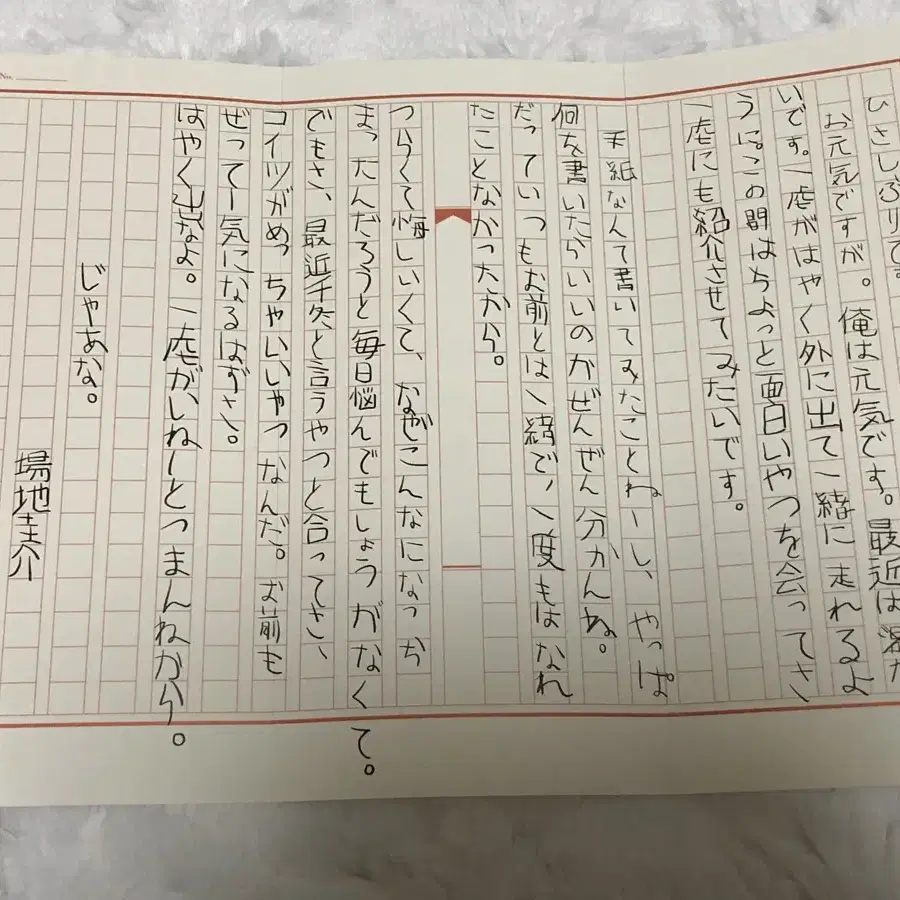 No.
ひさしぶりです
お元気ですが。俺は元気です。最近は
いです。一虎がはやく外に出て一緒に走れるよ
うに。この間はちよっと面白いやつを会ってさ
一虎にも紹介させてみたいです。
手紙なんて書いてみたことねーし、やっぱ
何を書いたらいいのかぜんぜん分かんね。
だっていつもお前とは一緒で、一度もはなれ
たことなかったから。
つらくて悔しいくて、なぜこんなになっち
まったんだろうと毎日悩んでもしょうがなくて。
でもさ、最近千冬と言うやつと合ってさ、
コイツがめっちゃいいやつなんだ。お前も
ぜってー気になるはずさ。
はやく出なよ。一虎がいねーとつまんねから。
じゃあな。
場地圭介